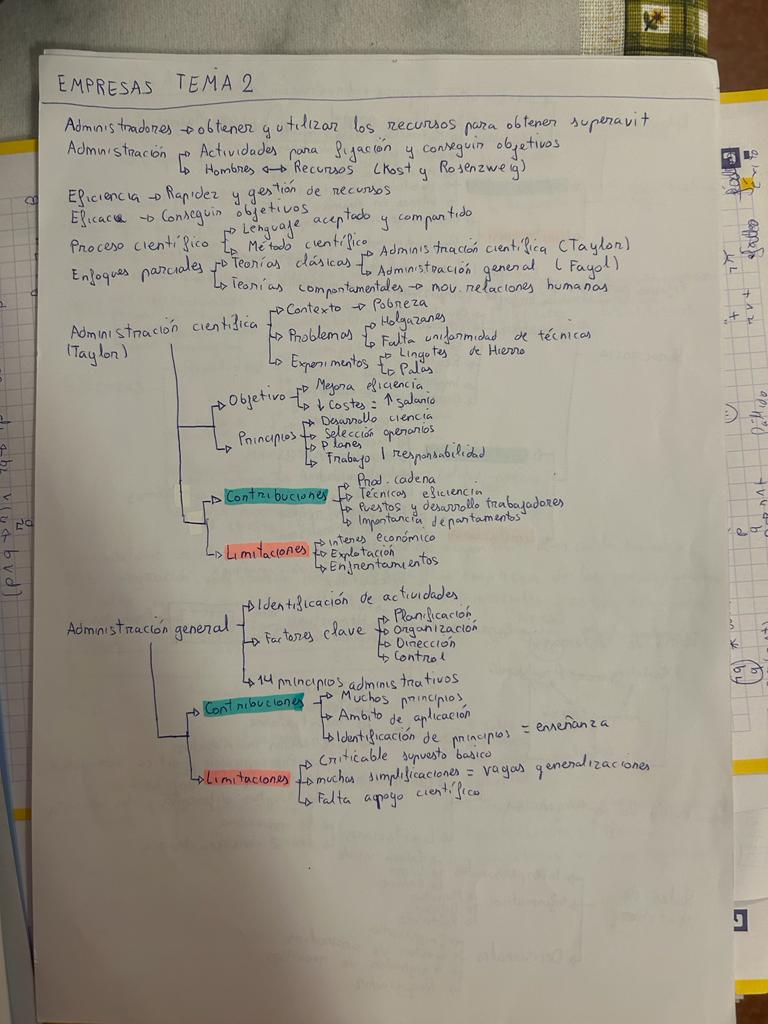 EMPRESAS TEMA 2
Administradores → obtener y utilizar los recursos para obtener superavit
Administración → Actividades para fijación y conseguir objetivos
→ Hombres ↔ Recursos (Kost y Rosenzweig)
Eficiencia → Rapidez y gestión de recursos
Eficacia → Conseguir objetivos
Proceso científico → Lenguaje aceptado y compartido
→ Método científico
Enfoques parciales → Teorías clásicas → Administración científica (Taylor)
→ Administración general (Fayol)
→ Teorías comportamentales → nov. relaciones humanas
Administración científica (Taylor)
→ Contexto → Pobreza
→ Problemas → Holgazanes
→ Falta uniformidad de técnicas
→ Experimentos → Lingotes de Hierro
→ Palas
→ Objetivo → Mejora eficiencia
→ ↓ Costes = ↑ Salario
→ Principios → Desarrollo ciencia
→ Selección operarios
→ Planes
→ Trabajo / responsabilidad
→ Contribuciones → Prod. cadena
→ Técnicas eficiencia
→ Puestos y desarrollo trabajadores
→ Importancia departamentos
→ Limitaciones → interes económico
→ Explotación
→ Enfrentamientos
Administración general → Identificación de actividades
→ Factores clave → Planificación
→ Organización
→ Dirección
→ Control
→ 14 principios administrativos
→ Contribuciones → Muchos principios
→ Ambito de aplicación
→ Identificación de principios = enseñanza
→ Limitaciones → Criticable supuesto basico
→ muchas simplificaciones = vagas generalizaciones
→ Falta apoyo científico